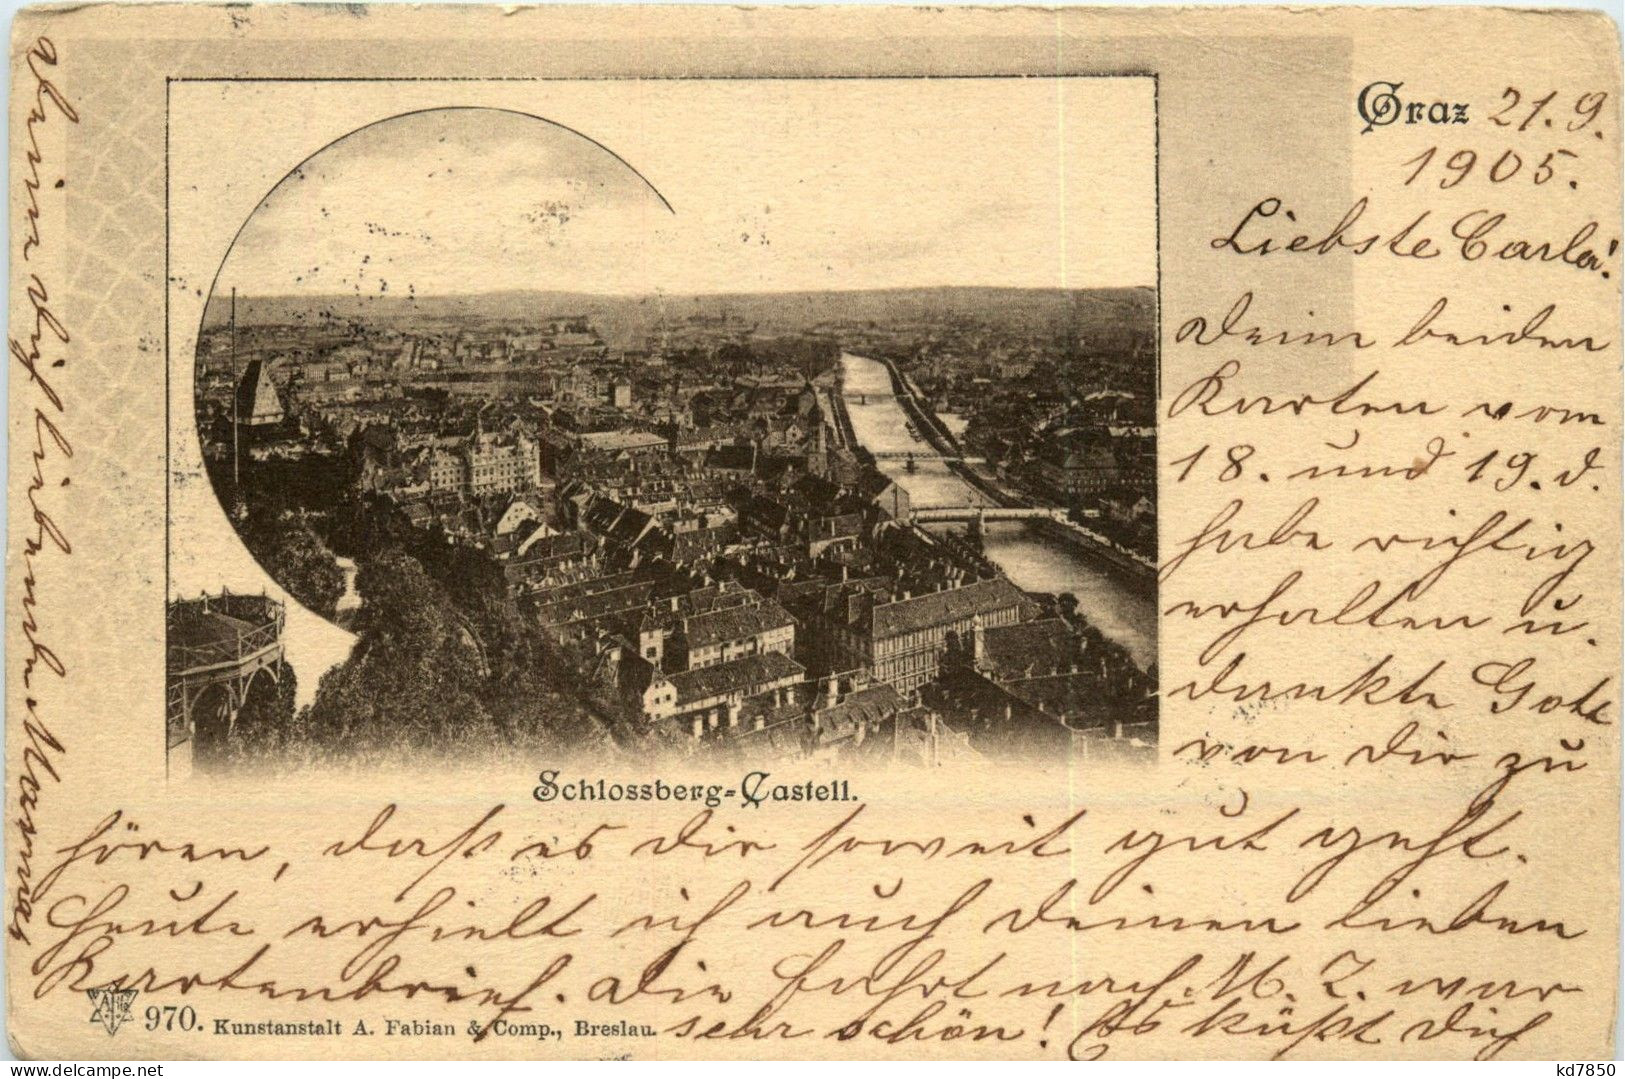 Graz 21. 9.
1905.
Liebste Carla!
Deine beiden
Karten vom
18. und 19. d.
habe richtig
erhalten u.
dankte Gott
von Dir zu
hören, daß es Dir soweit gut geht.
Heute erhielt ich auch Deinen lieben
Kartenbrief. Die Fahrt nach M. Z. war
sehr schön! Es küßt Dich
Deine Dich liebende Mama
Schlossberg-Castell.
970. Kunstanstalt A. Fabian & Comp., Breslau.
kd7850